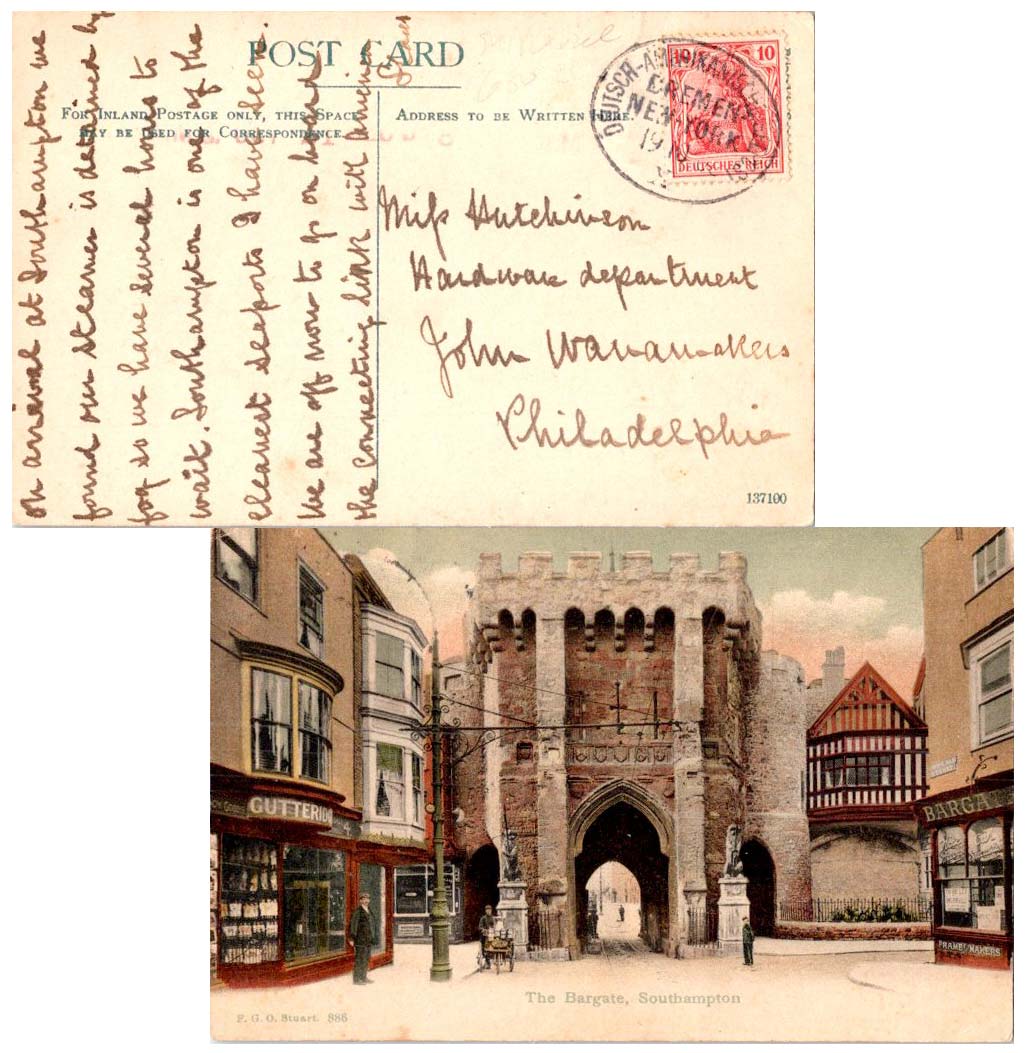 POST CARD
FOR INLAND POSTAGE ONLY, THIS SPACE
MAY BE USED FOR CORRESPONDENCE.
ADDRESS TO BE WRITTEN HERE.
on arrival at Southampton we
found our steamer is detained by
fog so we have several hours to
wait. Southampton is one of the
cleanest seaports I have seen.
We are off now to go on board
the connecting link with America
DEUTSCH-AMERIKAN
BREMEN-
NEW YORK
19
10
10
DEUTSCHES REICH
Miss Hutchinson
Hardware department
John Wanamakers
Philadelphia
137100
GUTTERID
BARGA
FRAME MAKERS
The Bargate, Southampton
F. G. O. Stuart. 886